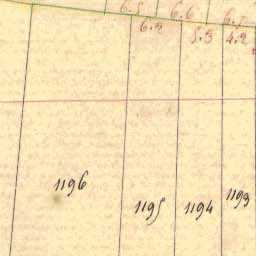 6.5 6.6 6.7
6.2 5.3 4.2
1196 1195 1194 1193